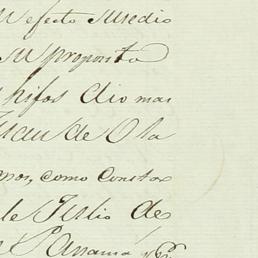 efecto medio
su proposito
hijos dio mas
Juan de Ola
mos, como consta
de Julio de
Panamá